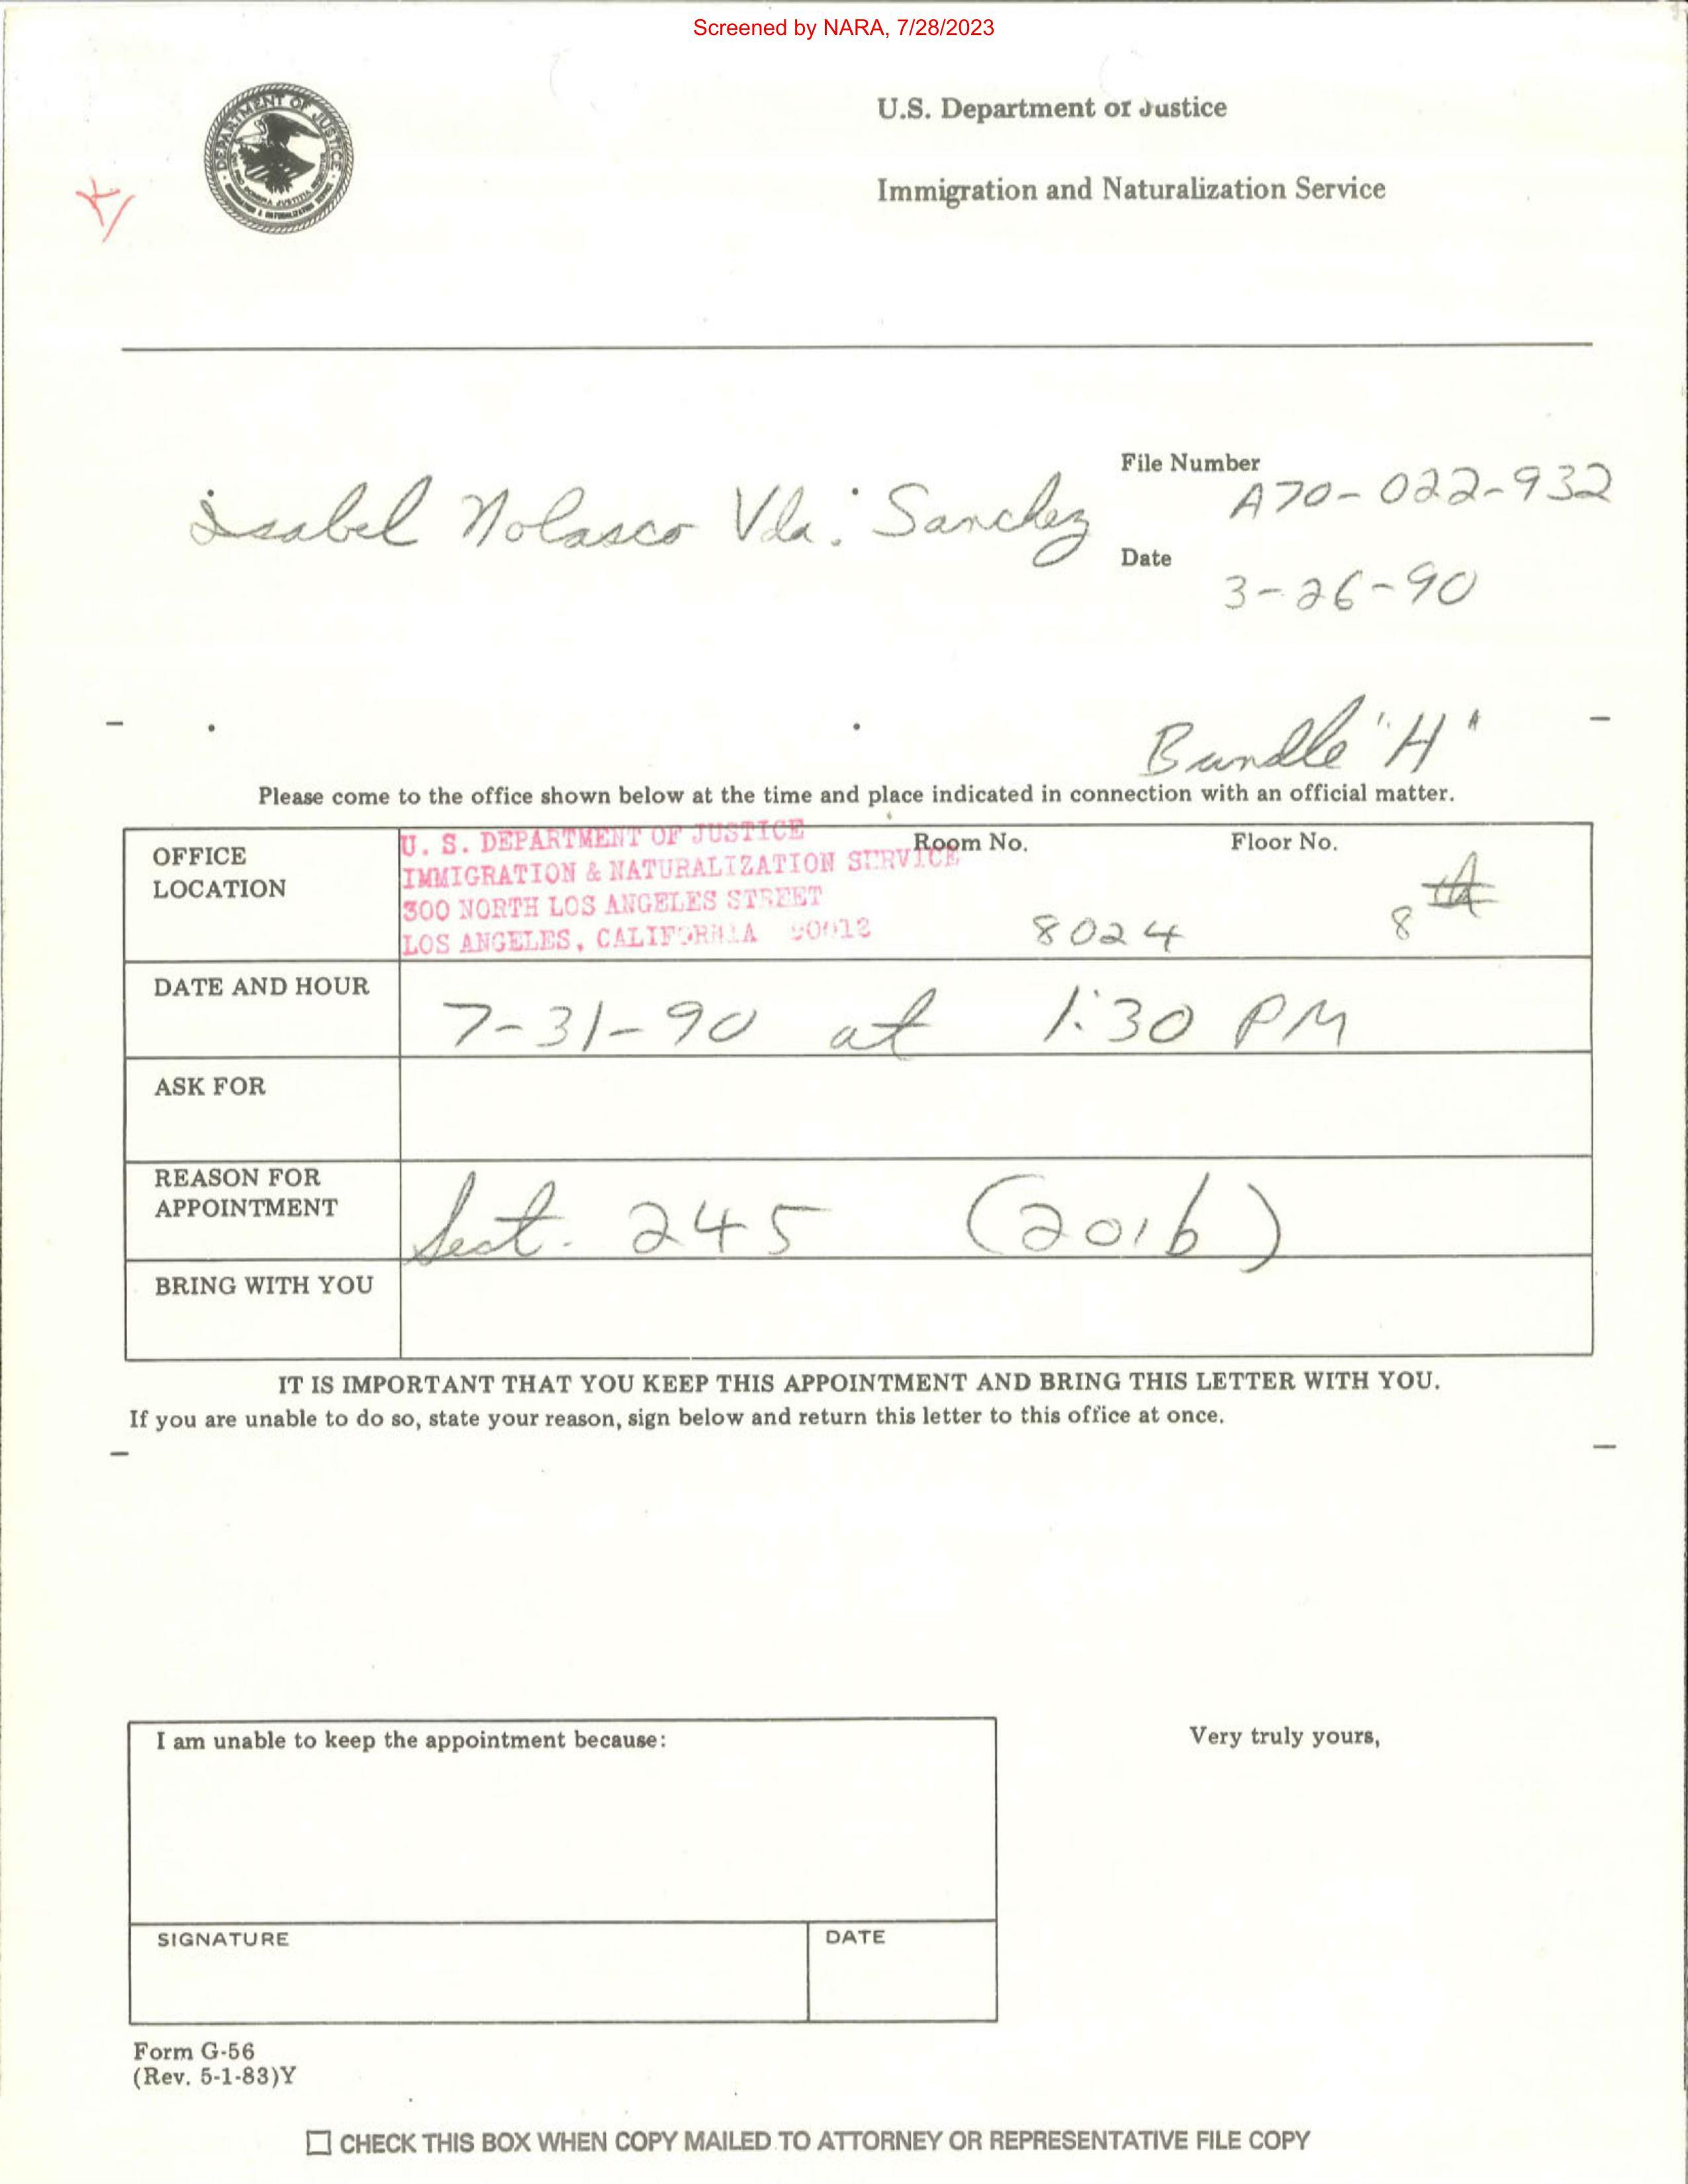 Screened by NARA, 7/28/2023
DEPARTMENT OF JUSTICE
U.S. Department of Justice
Immigration and Naturalization Service
File Number
A70-022-932
Isabel Nolasco Vda. Sanchez
Date
3-26-90
Bundle "H"
Please come to the office shown below at the time and place indicated in connection with an official matter.
OFFICE LOCATION
U. S. DEPARTMENT OF JUSTICE
IMMIGRATION & NATURALIZATION SERVICE
300 NORTH LOS ANGELES STREET
LOS ANGELES, CALIFORNIA 90012
Room No.
8024
Floor No.
8th
DATE AND HOUR
7-31-90 at 1:30 PM
ASK FOR
REASON FOR APPOINTMENT
Sect. 245 (201b)
BRING WITH YOU
IT IS IMPORTANT THAT YOU KEEP THIS APPOINTMENT AND BRING THIS LETTER WITH YOU.
If you are unable to do so, state your reason, sign below and return this letter to this office at once.
I am unable to keep the appointment because:
Very truly yours,
SIGNATURE
DATE
Form G-56
(Rev. 5-1-83)Y
CHECK THIS BOX WHEN COPY MAILED TO ATTORNEY OR REPRESENTATIVE FILE COPY